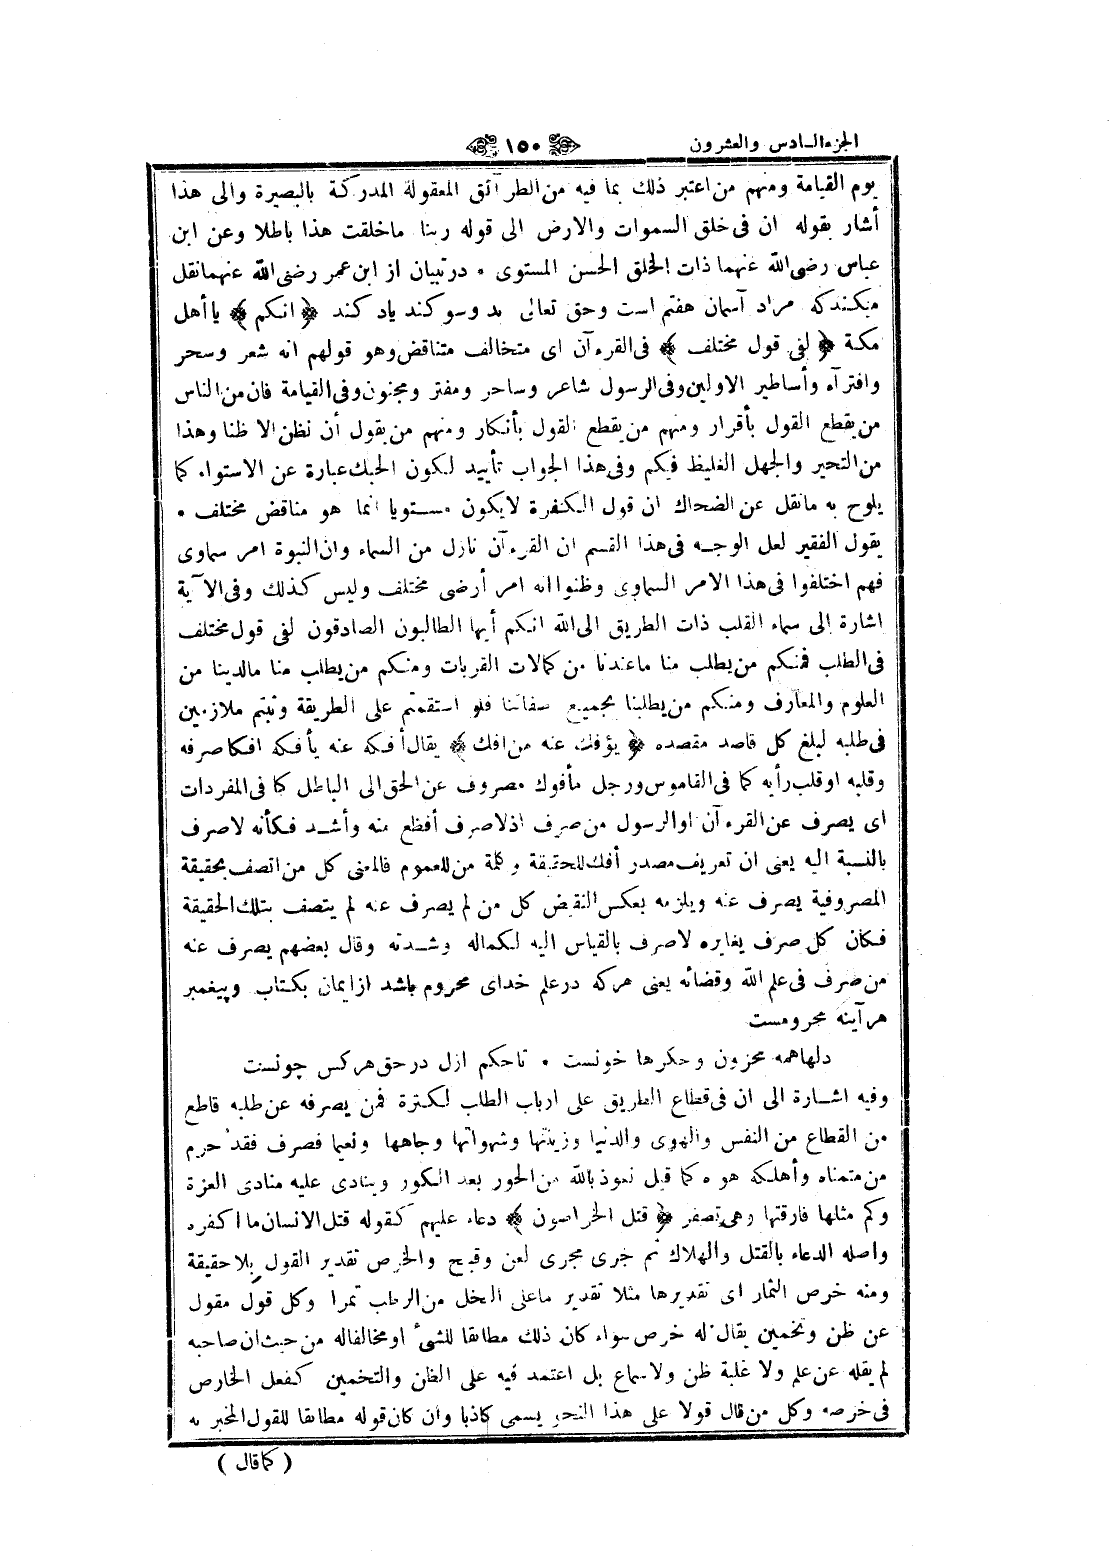 الجزء السادس والعشرون
١٥٠
يوم القيامة ومنهم من اعتبر ذلك بما فيه من الطرآئق المعقولة المدركة بالبصيرة والى هذا
أشار بقوله ان فى خلق السموات والارض الى قوله ربنا ماخلقت هذا باطلا وعن ابن
عباس رضى الله عنهما ذات الخلق الحسن المستوى • در تبيان از ابن عمر رضى الله عنهما نقل
ميكند كه مراد آسمان هفتم است وحق تعالى بد وسوكند ياد كند ﴿ انكم ﴾ يا أهل
مكة ﴿ لفى قول مختلف ﴾ فى القرءآن اى متخالف متناقض وهو قولهم انه شعر وسحر
وافترآء وأساطير الاولين وفى الرسول شاعر وساحر ومفتر ومجنون وفى القيامة فان من الناس
من يقطع القول بأقرار ومنهم من يقطع القول بأنكار ومنهم من يقول أن نظن الا ظنا وهذا
من التحير والجهل الغليظ فيكم وفى هذا الجواب تأييد لكون الحبك عبارة عن الاستواء كما
يلوح به مانقل عن الضحاك ان قول الكفرة لايكون مستويا انما هو مناقض مختلف •
يقول الفقير لعل الوجه فى هذا القسم ان القرءآن نازل من السماء وان النبوة امر سماوى
فهم اختلفوا فى هذا الامر السماوى وظنوا انه امر أرضى مختلف وليس كذلك وفى الآية
اشارة الى سماء القلب ذات الطريق الى الله انكم أيها الطالبون الصادقون لفى قول مختلف
فى الطلب فمنكم من يطلب منا ماعندنا من كمالات القربات ومنكم من يطلب منا مالدينا من
العلوم والمعارف ومنكم من يطلبنا بجميع صفاتنا فلو استقمتم على الطريقة وثبتم ملازمين
فى طلبه لبلغ كل قاصد مقصده ﴿ يؤفك عنه من افك ﴾ يقال أفكه عنه يأفكه افكا صرفه
وقلبه او قلب رأيه كما فى القاموس ورجل مأفوك مصروف عن الحق الى الباطل كما فى المفردات
اى يصرف عن القرءآن او الرسول من صرف اذ لاصرف أفظع منه وأشد فكأنه لاصرف
بالنسبة اليه يعنى ان تعريف مصدر أفك للحقيقة وكلمة من للعموم فالمعنى كل من اتصف بحقيقة
المصروفية يصرف عنه ويلزمه بعكس النقيض كل من لم يصرف عنه لم يتصف بتلك الحقيقة
فكان كل صرف يغايره لاصرف بالقياس اليه لكماله وشدته وقال بعضهم يصرف عنه
من صرف فى علم الله وقضائه يعنى هركه در علم خداى محروم باشد از ايمان بكتاب وپيغمبر
هر آينه محرومست
دلها همه محزون وجكرها خونست • تا حكم ازل در حق هركس چونست
وفيه اشارة الى ان فى قطاع الطريق على ارباب الطلب لكثرة فمن يصرفه عن طلبه قاطع
من القطاع من النفس والهوى والدنيا وزينتها وشهواتها وجاهها ونعيمها فصرف فقد حرم
من متمناه وأهلكه هواه كما قيل نعوذ بالله من الحور بعد الكور وينادى عليه منادى العزة
وكم مثلها فارقتها وهى تصفر ﴿ قتل الخراصون ﴾ دعاء عليهم كقوله قتل الانسان ما اكفره
واصله الدعاء بالقتل والهلاك ثم جرى مجرى لعن وقبح والخرص تقدير القول بلا حقيقة
ومنه خرص الثمار اى تقديرها مثلا تقدير ماعلى النخل من الرطب تمرا وكل قول مقول
عن ظن وتخمين يقال له خرص سواء كان ذلك مطابقا للشئ او مخالفاله من حيث ان صاحبه
لم يقله عن علم ولا غلبة ظن ولا سماع بل اعتمد فيه على الظن والتخمين كفعل الخارص
فى خرصه وكل من قال قولا على هذا النحو يسمى كاذبا وان كان قوله مطابقا للقول المخبر به
( كما قال )